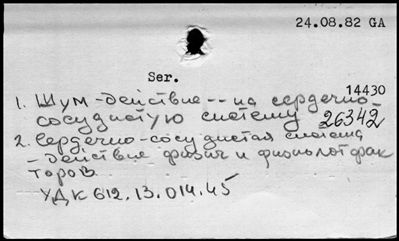 24.08.82 GA
Ser.
14430
1. Шум-действие -- на сердечно-
сосудистую систему 26342
2. Сердечно-сосудистая система
- действие физич и физиол фак
торов
УДК 612.13.014.45